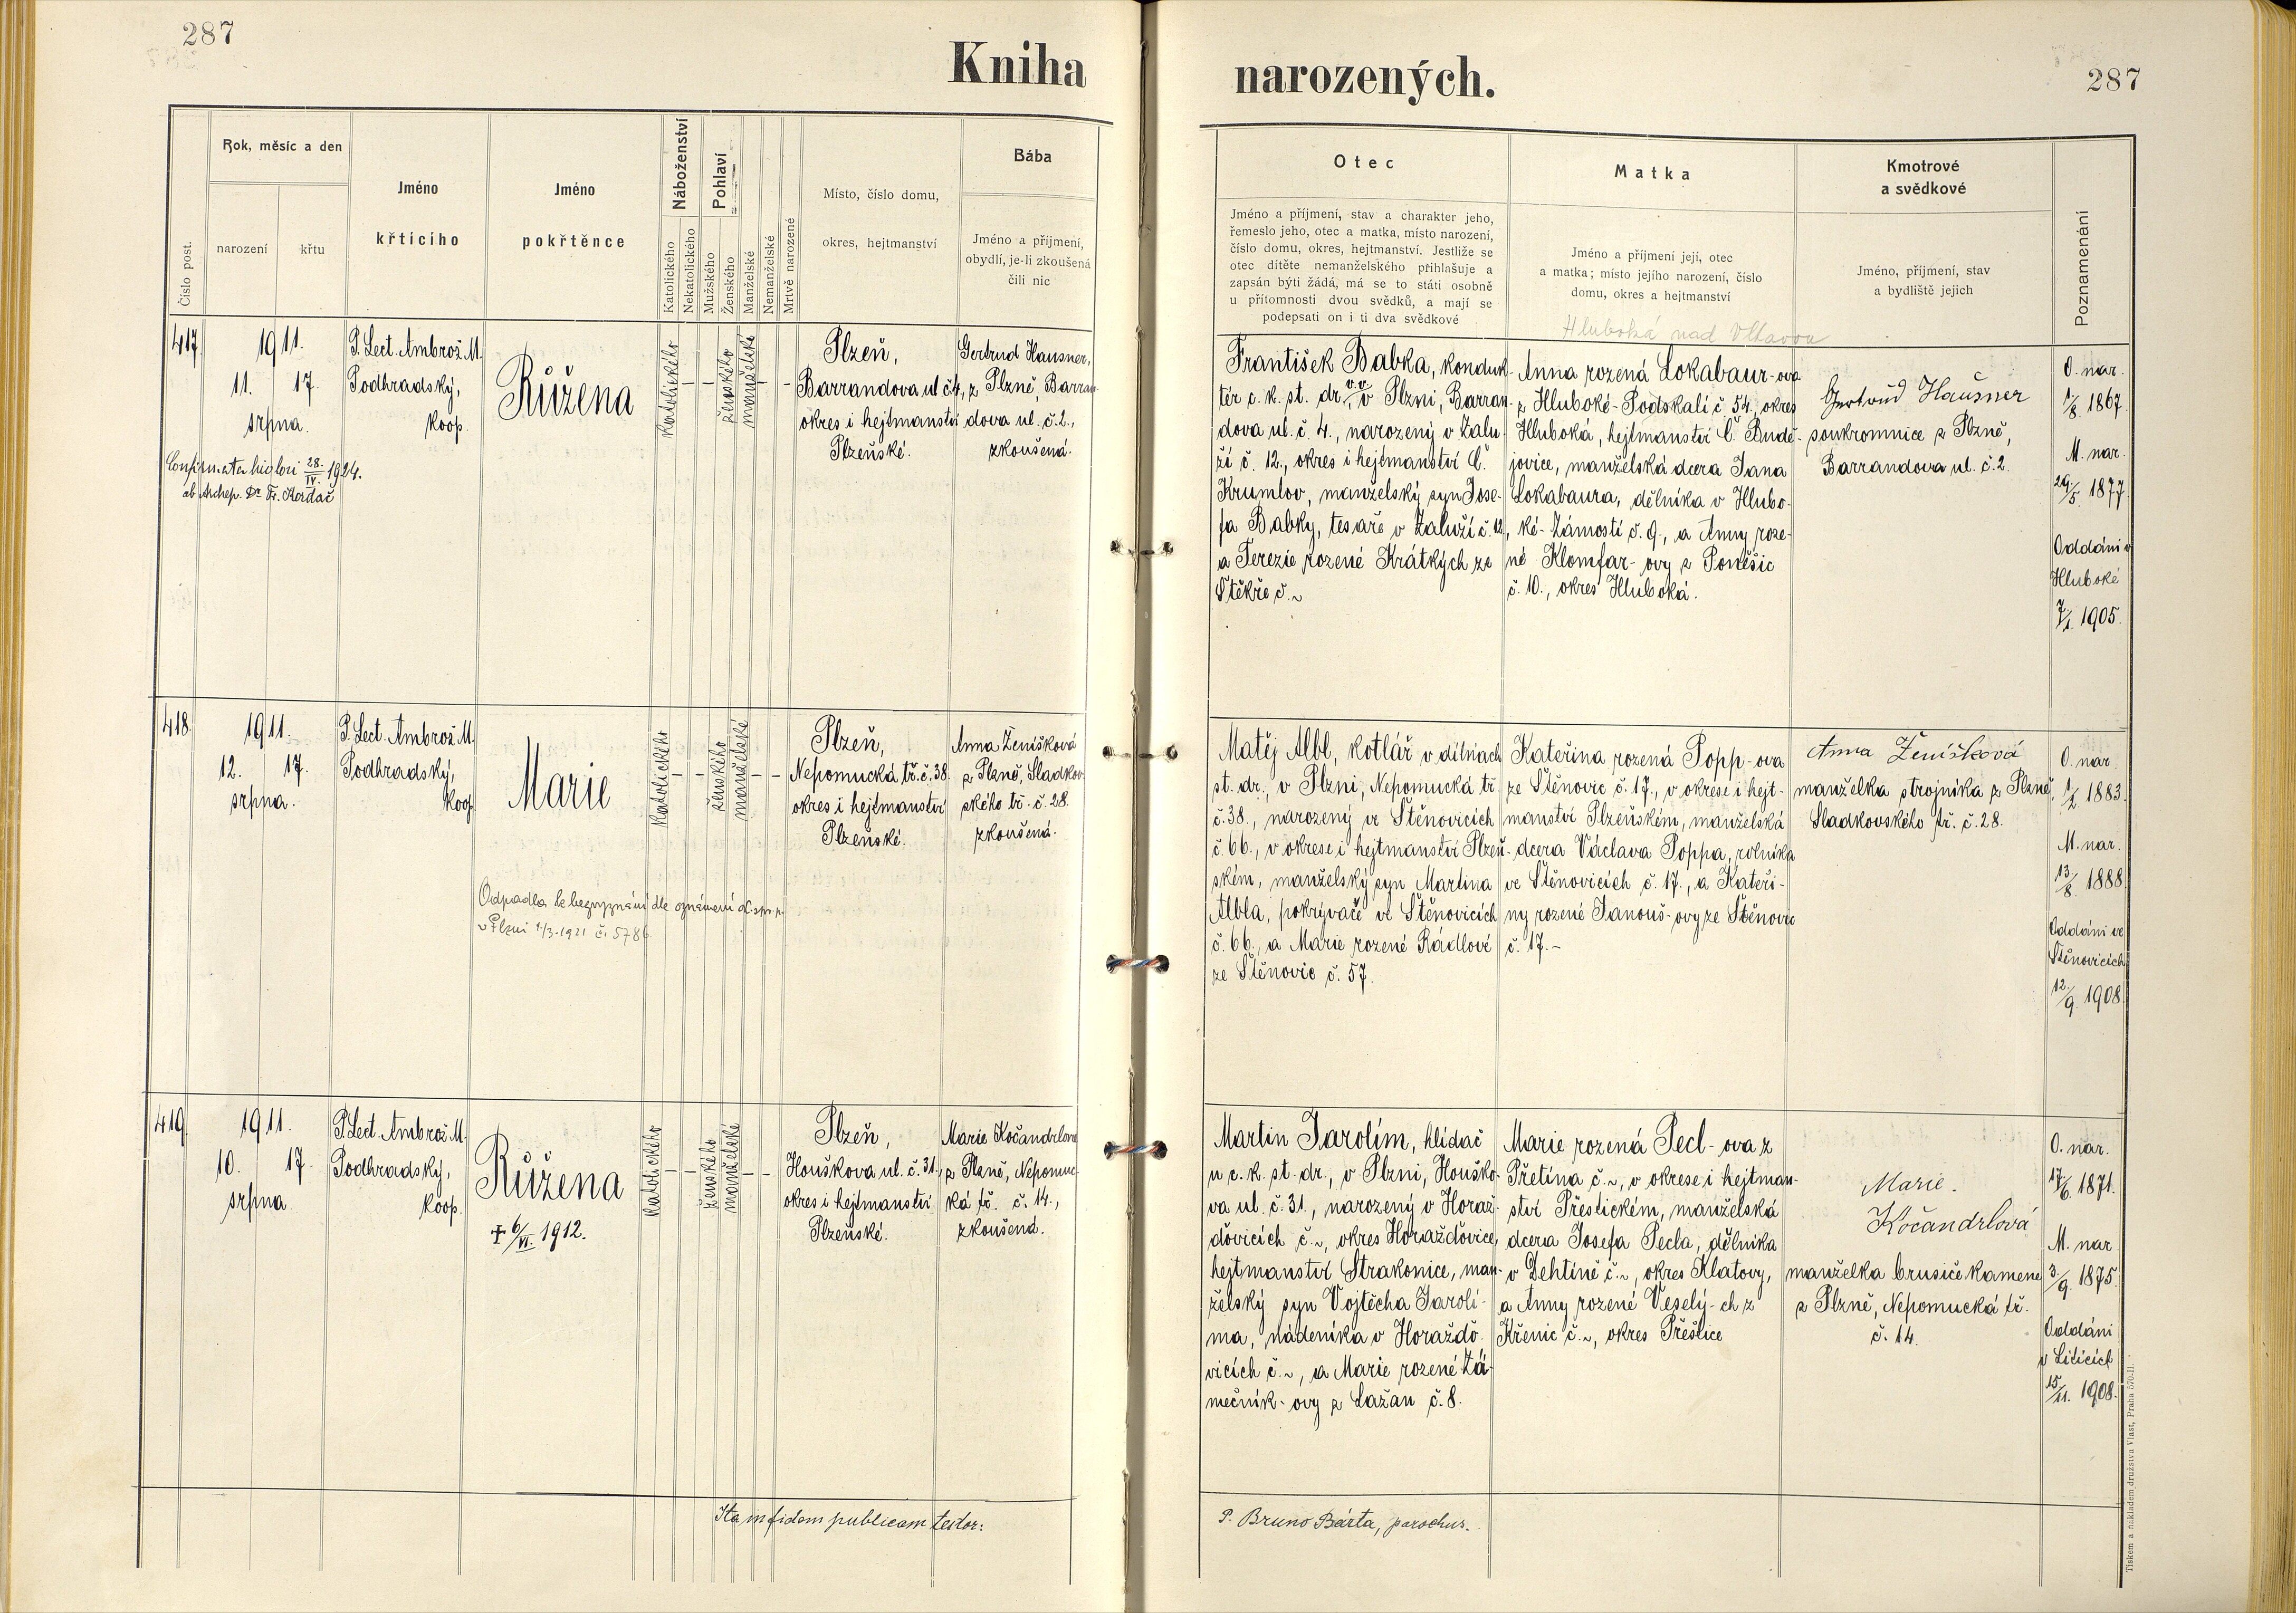 287
Kniha
narozených.
287
Číslo post.
Rok, měsíc a den
narození
křtu
Jméno
křtícího
Jméno
pokřtěnce
Náboženství
Katolického
Nekatolického
Pohlaví
Mužského
Ženského
Manželské
Nemanželské
Mrtvě narozené
Místo, číslo domu,
okres, hejtmanství
Bába
Jméno a příjmení,
obydlí, je-li zkoušená
čili nic
Otec
Jméno a příjmení, stav a charakter jeho,
řemeslo jeho, otec a matka, místo narození,
číslo domu, okres, hejtmanství. Jestliže se
otec dítěte nemanželského přihlašuje a
zapsán býti žádá, má se to státi osobně
u přítomnosti dvou svědků, a mají se
podepsati on i ti dva svědkové
Matka
Jméno a příjmení její, otec
a matka; místo jejího narození, číslo
domu, okres a hejtmanství
Hluboká nad Vltavou
Kmotrové
a svědkové
Jméno, příjmení, stav
a bydliště jejich
Poznamenání
417
1911.
11. 17.
srpna.
P. Lect. Ambrož M.
Podhradský,
koop.
Růžena
katolického
–
–
ženského
manželské
–
–
Plzeň,
Barrandova ul. č. 4.,
okres i hejtmanství
Plzeňské.
Gertrud Hausner,
z Plzně, Barran-
dova ul. č. 2.,
zkoušená.
28./IV. 1924.
ab Archep. Dr. Fr. Kordač
František Babka, konduk-
tér c. k. st. dr., v Plzni, Barran-
dova ul. č. 4., narozený v Zalu-
ží č. 12., okres i hejtmanství Č.
Krumlov, manželský syn Jose-
fa Babky, tesaře v Zaluží č. 12,
a Terezie rozené Krátkých ze
Štěkře č. ~
Anna rozená Lokabaur-ova
z Hluboké-Podskalí č. 54., okres
Hluboká, hejtmanství Č. Budě-
jovice, manželská dcera Jana
Lokabaura, dělníka v Hlubo-
ké-Zámostí č. 9., a Anny roze-
né Klomfar-ovy z Poněšic
č. 10., okres Hluboká.
Gertrud Haušner
soukromnice z Plzně,
Barrandova ul. č. 2.
O. nar.
1/8. 1867.
M. nar.
29/5. 1877.
Oddáni v
Hluboké
7/1. 1905.
418.
1911.
12. 17.
srpna.
P. Lect. Ambrož M.
Podhradský,
koop.
Marie
katolického
–
–
ženského
manželské
–
–
Plzeň,
Nepomucká tř. č. 38.
okres i hejtmanství
Plzeňské.
Anna Ženíšková
z Plzně, Sladkov-
ského tř. č. 28.
zkoušená.
Odpadla k bezvyznání dle oznámení
v Plzni 1/3. 1921 č. 5786.
Matěj Albl, kotlář v dílnách
st. dr., v Plzni, Nepomucká tř.
č. 38., narozený ve Štěnovicích
č. 66., v okrese i hejtmanství Plzeň-
ském, manželský syn Martina
Albla, pokrývače ve Štěnovicích
č. 66., a Marie rozené Rádlové
ze Štěnovic č. 57.
Kateřina rozená Popp-ova
ze Štěnovic č. 17., v okrese i hejt-
manství Plzeňském, manželská
dcera Václava Poppa, rolníka
ve Štěnovicích č. 17., a Kateři-
ny rozené Janouš-ovy ze Štěnovic
č. 17. –
Anna Ženíšková
manželka strojníka z Plzně,
Sladkovského tř. č. 28.
O. nar.
1/2. 1883.
M. nar.
13/8. 1888.
Oddáni ve
Štěnovicích
12./9. 1908.
419
1911.
10. 17.
srpna.
P. Lect. Ambrož M.
Podhradský,
koop.
Růžena
+ 6/VI. 1912.
katolického
–
–
ženského
manželské
–
–
Plzeň,
Houškova ul. č. 31.,
okres i hejtmanství
Plzeňské.
Marie Kočandrlová
z Plzně, Nepomuc-
ká tř. č. 14.,
zkoušená.
Martin Jarolím, hlídač
u c. k. st. dr., v Plzni, Houško-
va ul. č. 31., narozený v Horaž-
ďovicích č. ~, okres Horažďovice,
hejtmanství Strakonice, man-
želský syn Vojtěcha Jarolí-
ma, nádeníka v Horaždo-
vicích č. ~, a Marie rozené Zá-
mečník-ovy z Lažan č. 8.
Marie rozená Pecl-ova z
Přetína č. ~, v okrese i hejtman-
ství Přeštickém, manželská
dcera Josefa Pecla, dělníka
v Dehtíně č. ~, okres Klatovy,
a Anny rozené Veselý-ch z
Křenic č. ~, okres Přeštice
Marie.
Kočandrlová
manželka brusiče kamene
z Plzně, Nepomucká tř.
č. 14.
O. nar.
17/6. 1871.
M. nar.
3./9. 1875.
Oddáni
v Liticích
15./11. 1908.
Ita in fidem publicam testor:
P. Bruno Bárta, parochus.
Tiskem a nákladem družstva Vlast, Praha 570-II.